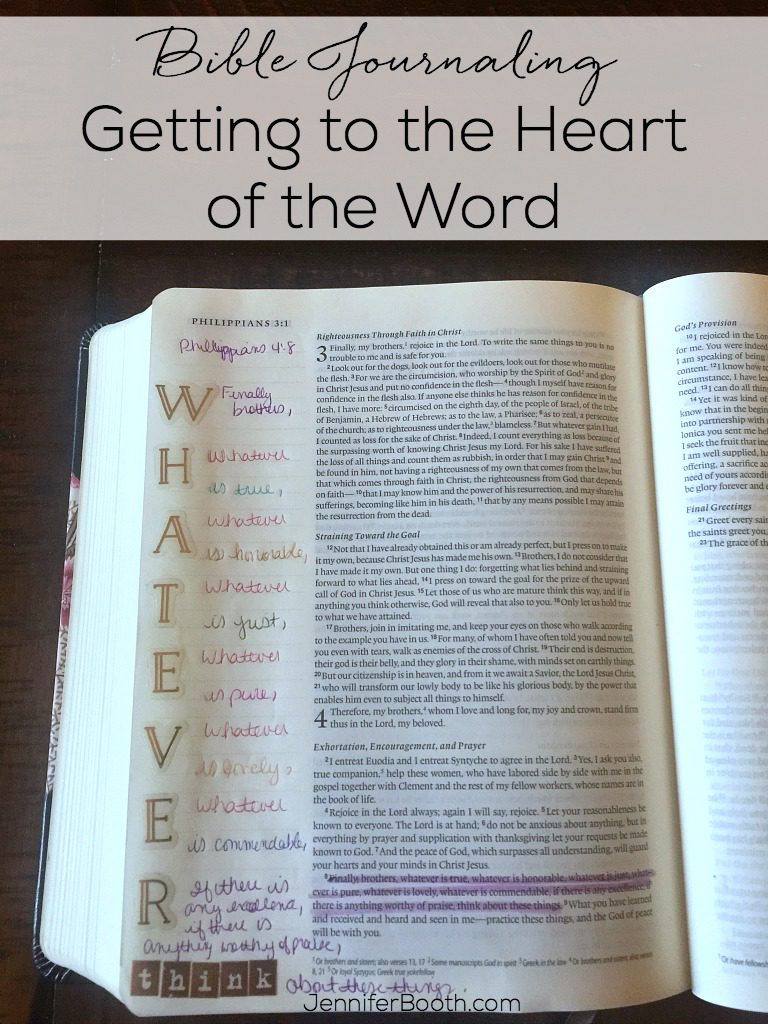 Bible Journaling
Getting to the Heart
of the Word
PHILIPPIANS 3:1
Phillippians 4:8
W Finally
brothers,
H Whatever
is true,
A Whatever
is honorable,
T Whatever
is just,
E Whatever
is pure,
V Whatever
is lovely,
E Whatever
is commendable,
R If there is
any excellence,
if there is
anything worthy of praise,
think about these things.
Righteousness Through Faith in Christ
3 Finally, my brothers,¹ rejoice in the Lord. To write the same things to you is no
trouble to me and is safe for you.
²Look out for the dogs, look out for the evildoers, look out for those who mutilate
the flesh. ³For we are the circumcision, who worship by the Spirit of God² and glory
in Christ Jesus and put no confidence in the flesh—⁴though I myself have reason for
confidence in the flesh also. If anyone else thinks he has reason for confidence in the
flesh, I have more: ⁵circumcised on the eighth day, of the people of Israel, of the tribe
of Benjamin, a Hebrew of Hebrews; as to the law, a Pharisee; ⁶as to zeal, a persecutor
of the church; as to righteousness under the law,³ blameless. ⁷But whatever gain I had,
I counted as loss for the sake of Christ. ⁸Indeed, I count everything as loss because of
the surpassing worth of knowing Christ Jesus my Lord. For his sake I have suffered
the loss of all things and count them as rubbish, in order that I may gain Christ ⁹and
be found in him, not having a righteousness of my own that comes from the law, but
that which comes through faith in Christ, the righteousness from God that depends
on faith—¹⁰that I may know him and the power of his resurrection, and may share his
sufferings, becoming like him in his death, ¹¹that by any means possible I may attain
the resurrection from the dead.
Straining Toward the Goal
¹²Not that I have already obtained this or am already perfect, but I press on to make
it my own, because Christ Jesus has made me his own. ¹³Brothers, I do not consider that
I have made it my own. But one thing I do: forgetting what lies behind and straining
forward to what lies ahead, ¹⁴I press on toward the goal for the prize of the upward
call of God in Christ Jesus. ¹⁵Let those of us who are mature think this way, and if in
anything you think otherwise, God will reveal that also to you. ¹⁶Only let us hold true
to what we have attained.
¹⁷Brothers, join in imitating me, and keep your eyes on those who walk according
to the example you have in us. ¹⁸For many, of whom I have often told you and now tell
you even with tears, walk as enemies of the cross of Christ. ¹⁹Their end is destruction,
their god is their belly, and they glory in their shame, with minds set on earthly things.
²⁰But our citizenship is in heaven, and from it we await a Savior, the Lord Jesus Christ,
²¹who will transform our lowly body to be like his glorious body, by the power that
enables him even to subject all things to himself.
4 Therefore, my brothers,⁴ whom I love and long for, my joy and crown, stand firm
thus in the Lord, my beloved.
Exhortation, Encouragement, and Prayer
²I entreat Euodia and I entreat Syntyche to agree in the Lord. ³Yes, I ask you also,
true companion,⁵ help these women, who have labored side by side with me in the
gospel together with Clement and the rest of my fellow workers, whose names are in
the book of life.
⁴Rejoice in the Lord always; again I will say, rejoice. ⁵Let your reasonableness be
known to everyone. The Lord is at hand; ⁶do not be anxious about anything, but in
everything by prayer and supplication with thanksgiving let your requests be made
known to God. ⁷And the peace of God, which surpasses all understanding, will guard
your hearts and your minds in Christ Jesus.
⁸Finally brothers, whatever is true, whatever is honorable, whatever is just, what-
ever is pure, whatever is lovely, whatever is commendable, if there is any excellence, if
there is anything worthy of praise, think about these things. ⁹What you have learned
and received and heard and seen in me—practice these things, and the God of peace
will be with you.
¹Or brothers and sisters; also verses 13, 17 ²Some manuscripts God in spirit ³Greek in the law ⁴Or brothers and sisters; also verses
8, 21 ⁵Or loyal Syzygus; Greek true yokefellow
God's Provision
¹⁰I rejoiced in the Lord
for me. You were indeed
I am speaking of being
content. ¹²I know how to
circumstance, I have lea
need. ¹³I can do all thing
¹⁴Yet it was kind of
know that in the begin
into partnership with
lonica you sent me hel
I seek the fruit that inc
I am well supplied, ha
offering, a sacrifice ac
need of yours accordi
be glory forever and e
Final Greetings
²¹Greet every sain
the saints greet you,
²³The grace of th
¹Or have fellowsh
JenniferBooth.com